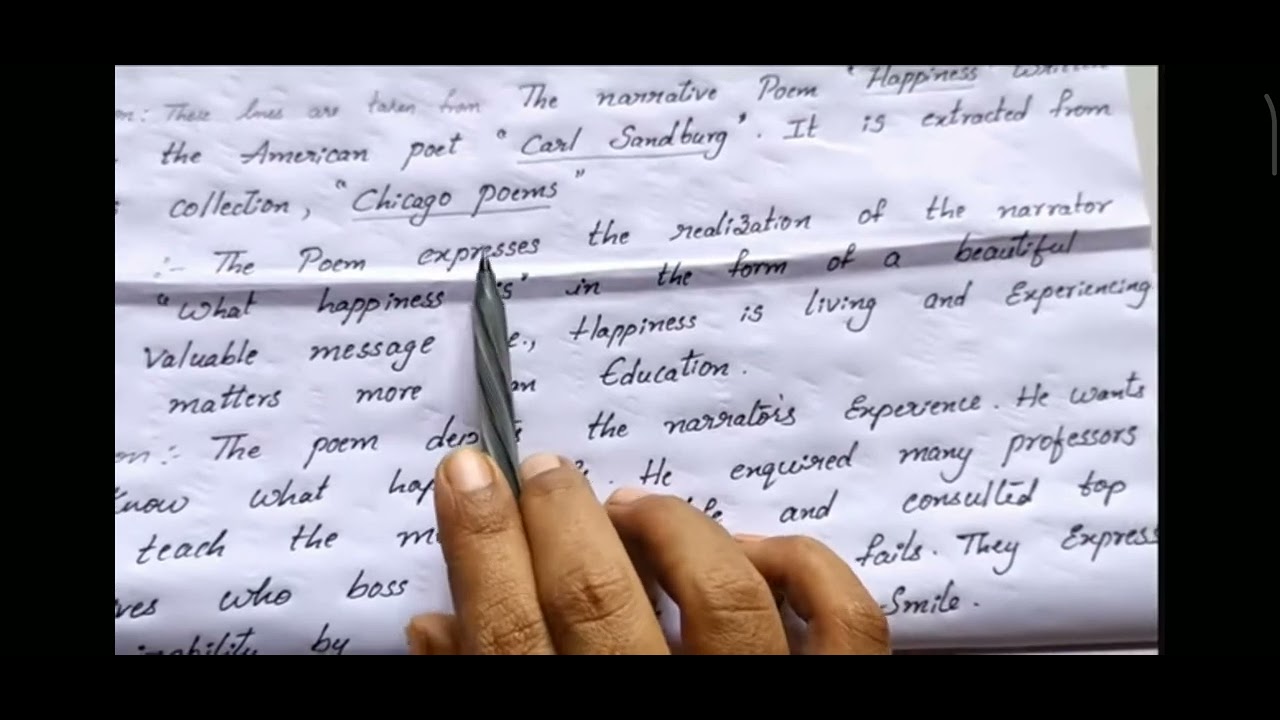 These lines are taken from The narrative Poem "Happiness"
the American poet "Carl Sandburg". It is extracted from
collection, "Chicago poems"
:- The Poem expresses the realization of the narrator
"What happiness is" in the form of a beautiful
Valuable message Happiness is living and Experiencing
matters more Education.
:- The poem the narrator's Experience. He wants
Know what He enquired many professors
teach the and consulted top
who boss fails. They Express
by Smile.